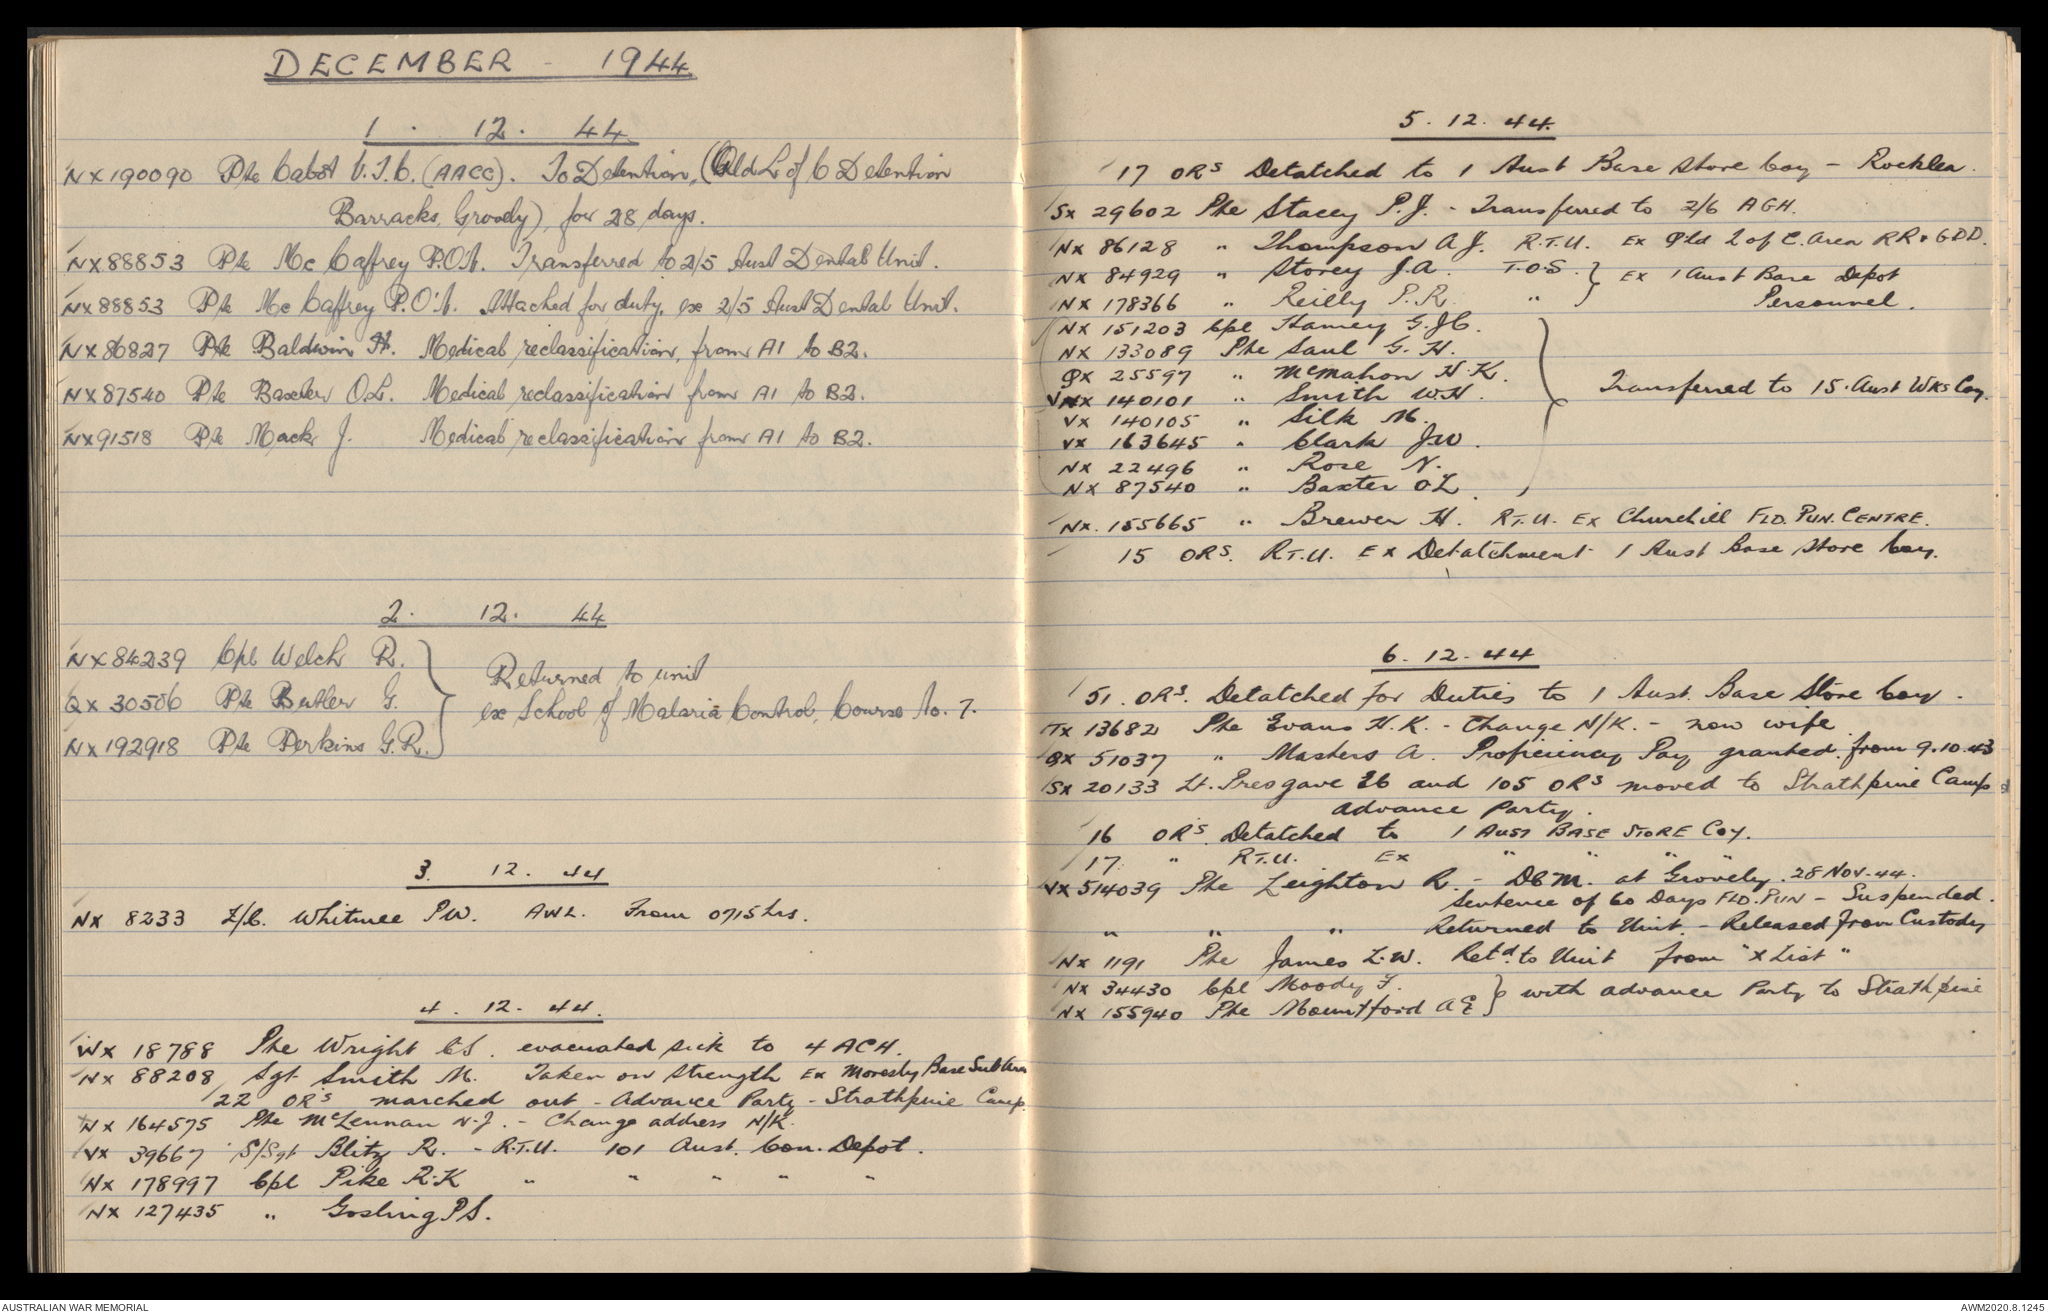 DECEMBER - 1944
1. 12. 44
NX190090 Pte Cabot V.J.C. (AACC). To Detention, (Qld L of C Detention
Barracks, Grovely), for 28 days.
NX88853 Pte McCaffrey P.O'N. Transferred to 2/5 Aust Dental Unit.
NX88853 Pte McCaffrey P.O'N. Attached for duty, ex 2/5 Aust Dental Unit.
NX86827 Pte Baldwin H. Medical reclassification, from A1 to B2.
NX87540 Pte Baxter O.L. Medical reclassification from A1 to B2.
NX91518 Pte Mack J. Medical reclassification from A1 to B2.
2. 12. 44
NX84239 Cpl Welch R.
QX30506 Pte Butler G.
NX192918 Pte Perkins G.R.
Returned to unit
ex School of Malaria Control, Course No. 7.
3. 12. 44
NX 8233 L/C. Whitnee P.W. AWL. From 0715 hrs.
4. 12. 44.
WX 18788 Pte Wright C S. evacuated sick to 4 ACH.
NX 88208 Sgt Smith M. Taken on Strength Ex Moresby Base Sub Area
22 ORs marched out - Advance Party - Strathpine Camp.
NX 164575 Pte McLennan N.J. - Change address N/K.
VX 39667 S/Sgt Blitz R. - R.T.U. 101 Aust. Con. Depot.
NX 178997 Cpl Pike R.K " " " " "
NX 127435 " Gosling P S.
5. 12. 44.
17 ORs Detatched to 1 Aust Base Store Coy - Rocklea.
SX 29602 Pte Stacey P.J. - Transferred to 2/6 AGH.
NX 86128 " Thompson A J. R.T.U. Ex Qld L of C. Area RR & GDD.
NX 84929 " Storey J.A. T.O.S. } Ex 1 Aust Base Depot
NX 178366 " Reilly P.R. " Personnel.
NX 151203 Cpl Hamey G.J C.
NX 133089 Pte Saul G. H.
QX 25597 " McMahon H.K.
VX 140101 " Smith W.H.
VX 140105 " Silk M.
VX 163645 " Clark J.W.
NX 22496 " Rose N.
NX 87540 " Baxter O L.
Transferred to 15 Aust Wks Coy.
NX. 155665 " Brewer H. R.T.U. Ex Churchill FLD. PUN. CENTRE.
15 ORs. R.T.U. Ex Detatchment 1 Aust Base Store Coy.
6. 12. 44
51. ORs. Detatched for Duties to 1 Aust. Base Store Coy.
TX 13682 Pte Evans H.K. - Change N/K. - now wife
QX 51037 " Masters A. Proficiency Pay granted from 9.10.43
SX 20133 Lt. Presgrave 26 and 105 ORs moved to Strathpine Camp
advance Party.
16 ORs. Detatched to 1 AUST BASE STORE COY.
17. " R.T.U. Ex " " " "
VX 514039 Pte Leighton R. - DCM. at Grovely. 28 Nov. 44.
Sentence of 60 Days FLD. PUN - Suspended.
" " " Returned to Unit. - Released from Custody
NX 1191 Pte James L.W. Retd. to Unit from "X List"
NX 34430 Cpl Moody F.
NX 155940 Pte Mountford A E } with advance Party to Strathpine
AUSTRALIAN WAR MEMORIAL
AWM2020.8.1245